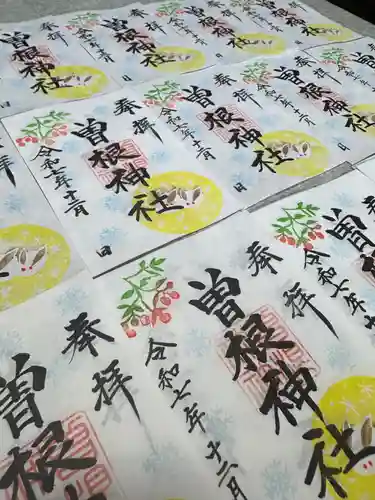 奉拝
曽根神社
令和七年十二月 日
奉拝
曽根神社
令和七年十二月 日
奉拝
曽根神社
令和七年十二月 日
奉拝
曽根神社
令和七年十二月 日
奉拝
曽根神社
令和七年十二月 日
奉拝
曽根神社
令和七年十二月
奉拝
曽根